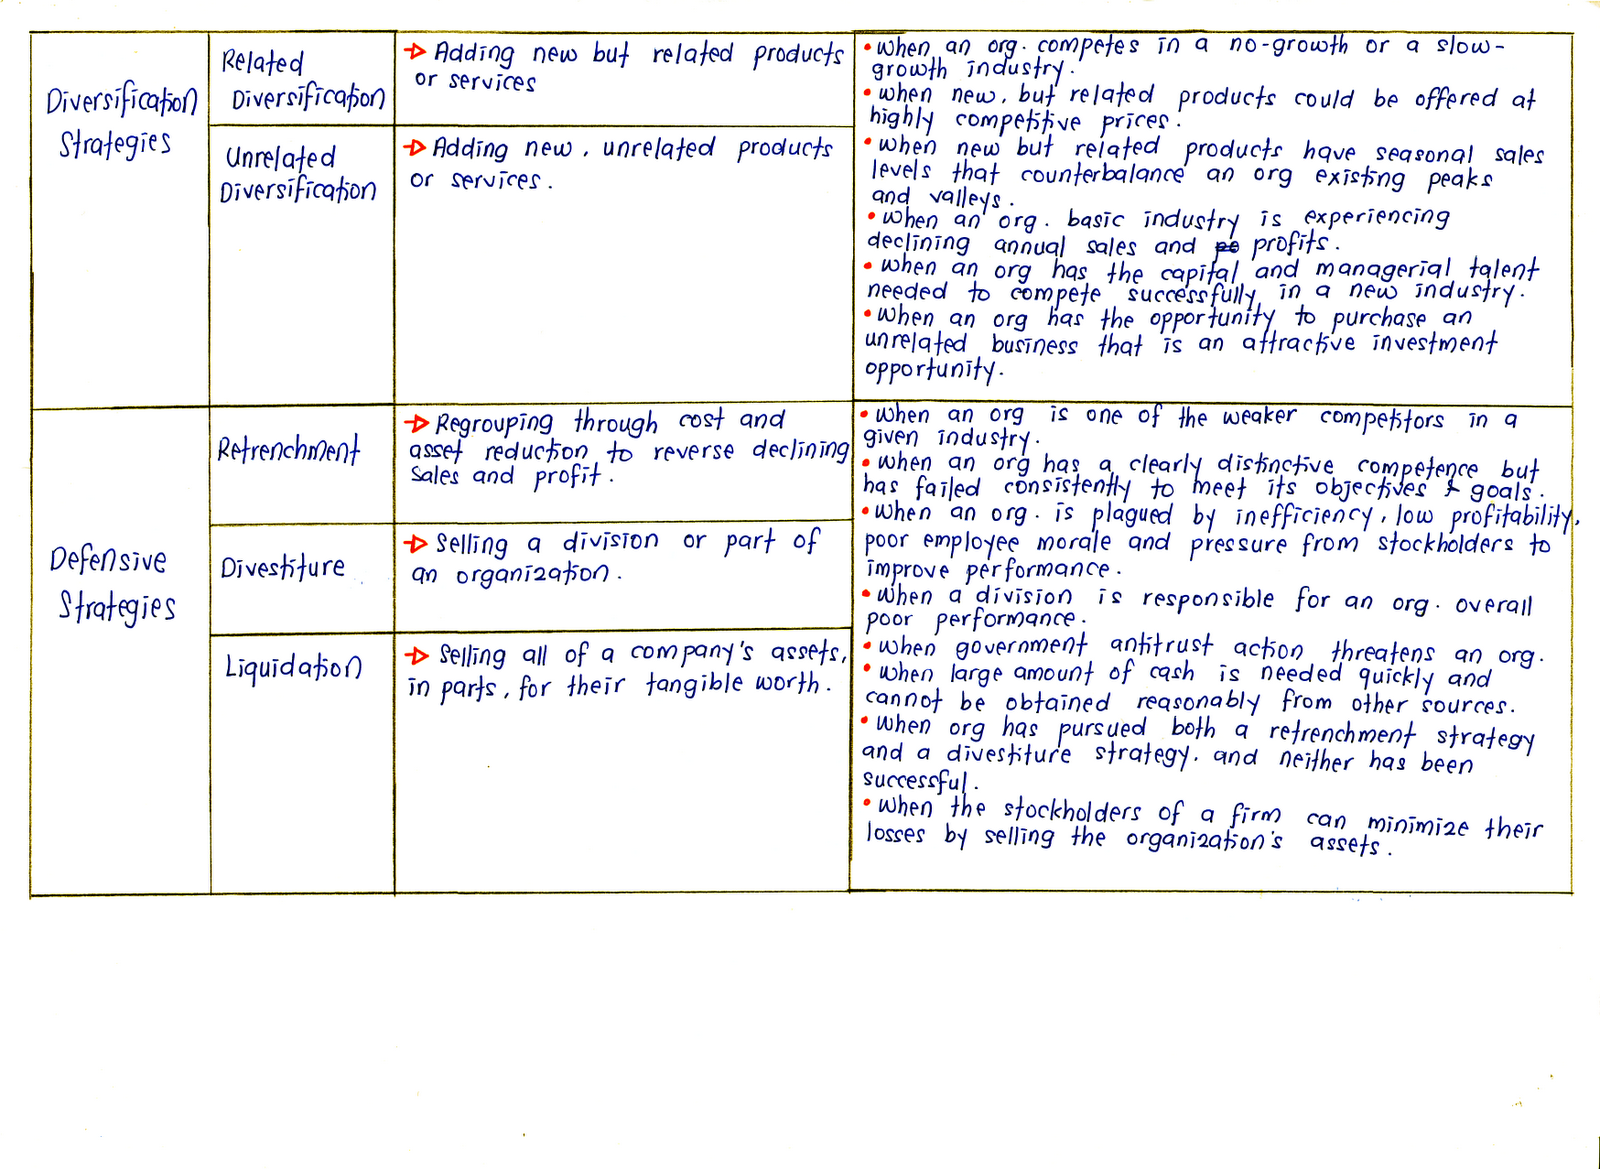 Diversification
Strategies
Related
Diversification
Adding new but related products
or services
Unrelated
Diversification
Adding new, unrelated products
or services.
• when an org. competes in a no-growth or a slow-
growth industry.
• when new, but related products could be offered at
highly competitive prices.
• when new but related products have seasonal sales
levels that counterbalance an org existing peaks
and valleys.
• when an org. basic industry is experiencing
declining annual sales and profits.
• when an org has the capital and managerial talent
needed to compete successfully in a new industry.
• when an org has the opportunity to purchase an
unrelated business that is an attractive investment
opportunity.
Defensive
Strategies
Retrenchment
Regrouping through cost and
asset reduction to reverse declining
sales and profit.
Divestiture
Selling a division or part of
an organization.
Liquidation
Selling all of a company's assets,
in parts, for their tangible worth.
• when an org is one of the weaker competitors in a
given industry.
• when an org has a clearly distinctive competence but
has failed consistently to meet its objectives & goals.
• when an org. is plagued by inefficiency, low profitability,
poor employee morale and pressure from stockholders to
improve performance.
• when a division is responsible for an org. overall
poor performance.
• when government antitrust action threatens an org.
• when large amount of cash is needed quickly and
cannot be obtained reasonably from other sources.
• when org has pursued both a retrenchment strategy
and a divestiture strategy, and neither has been
successful.
• when the stockholders of a firm can minimize their
losses by selling the organization's assets.